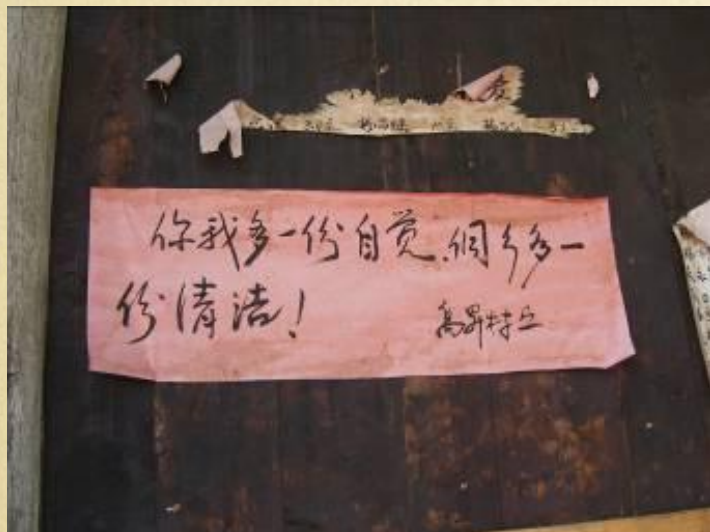 爱
你我多一份自觉.侗乡多一
份清洁!
高昇特立